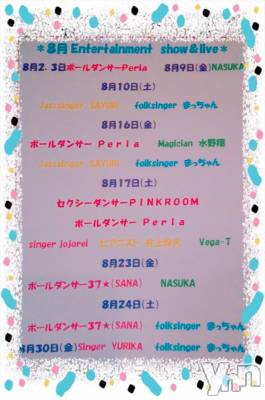 *8月 Entertainment show&live*
8月2.3日ポールダンサーPerla 8月9日(金)NASUKA
8月10日(土)
Jazzsinger SAYURI folksinger まっちゃん
8月16日(金)
ポールダンサー Perla Magician 水野翔
Jazzsinger SAYURI folksinger まっちゃん
8月17日(土)
セクシーダンサーPINKROOM
ポールダンサー Perla
singer jojorei ピアニスト Vega-T
8月23日(金)
ポールダンサー37★(SANA) NASUKA
8月24日(土)
ポールダンサー37★(SANA) folksinger まっちゃん
8月30日(金)Singer YURIKA folksinger まっちゃん